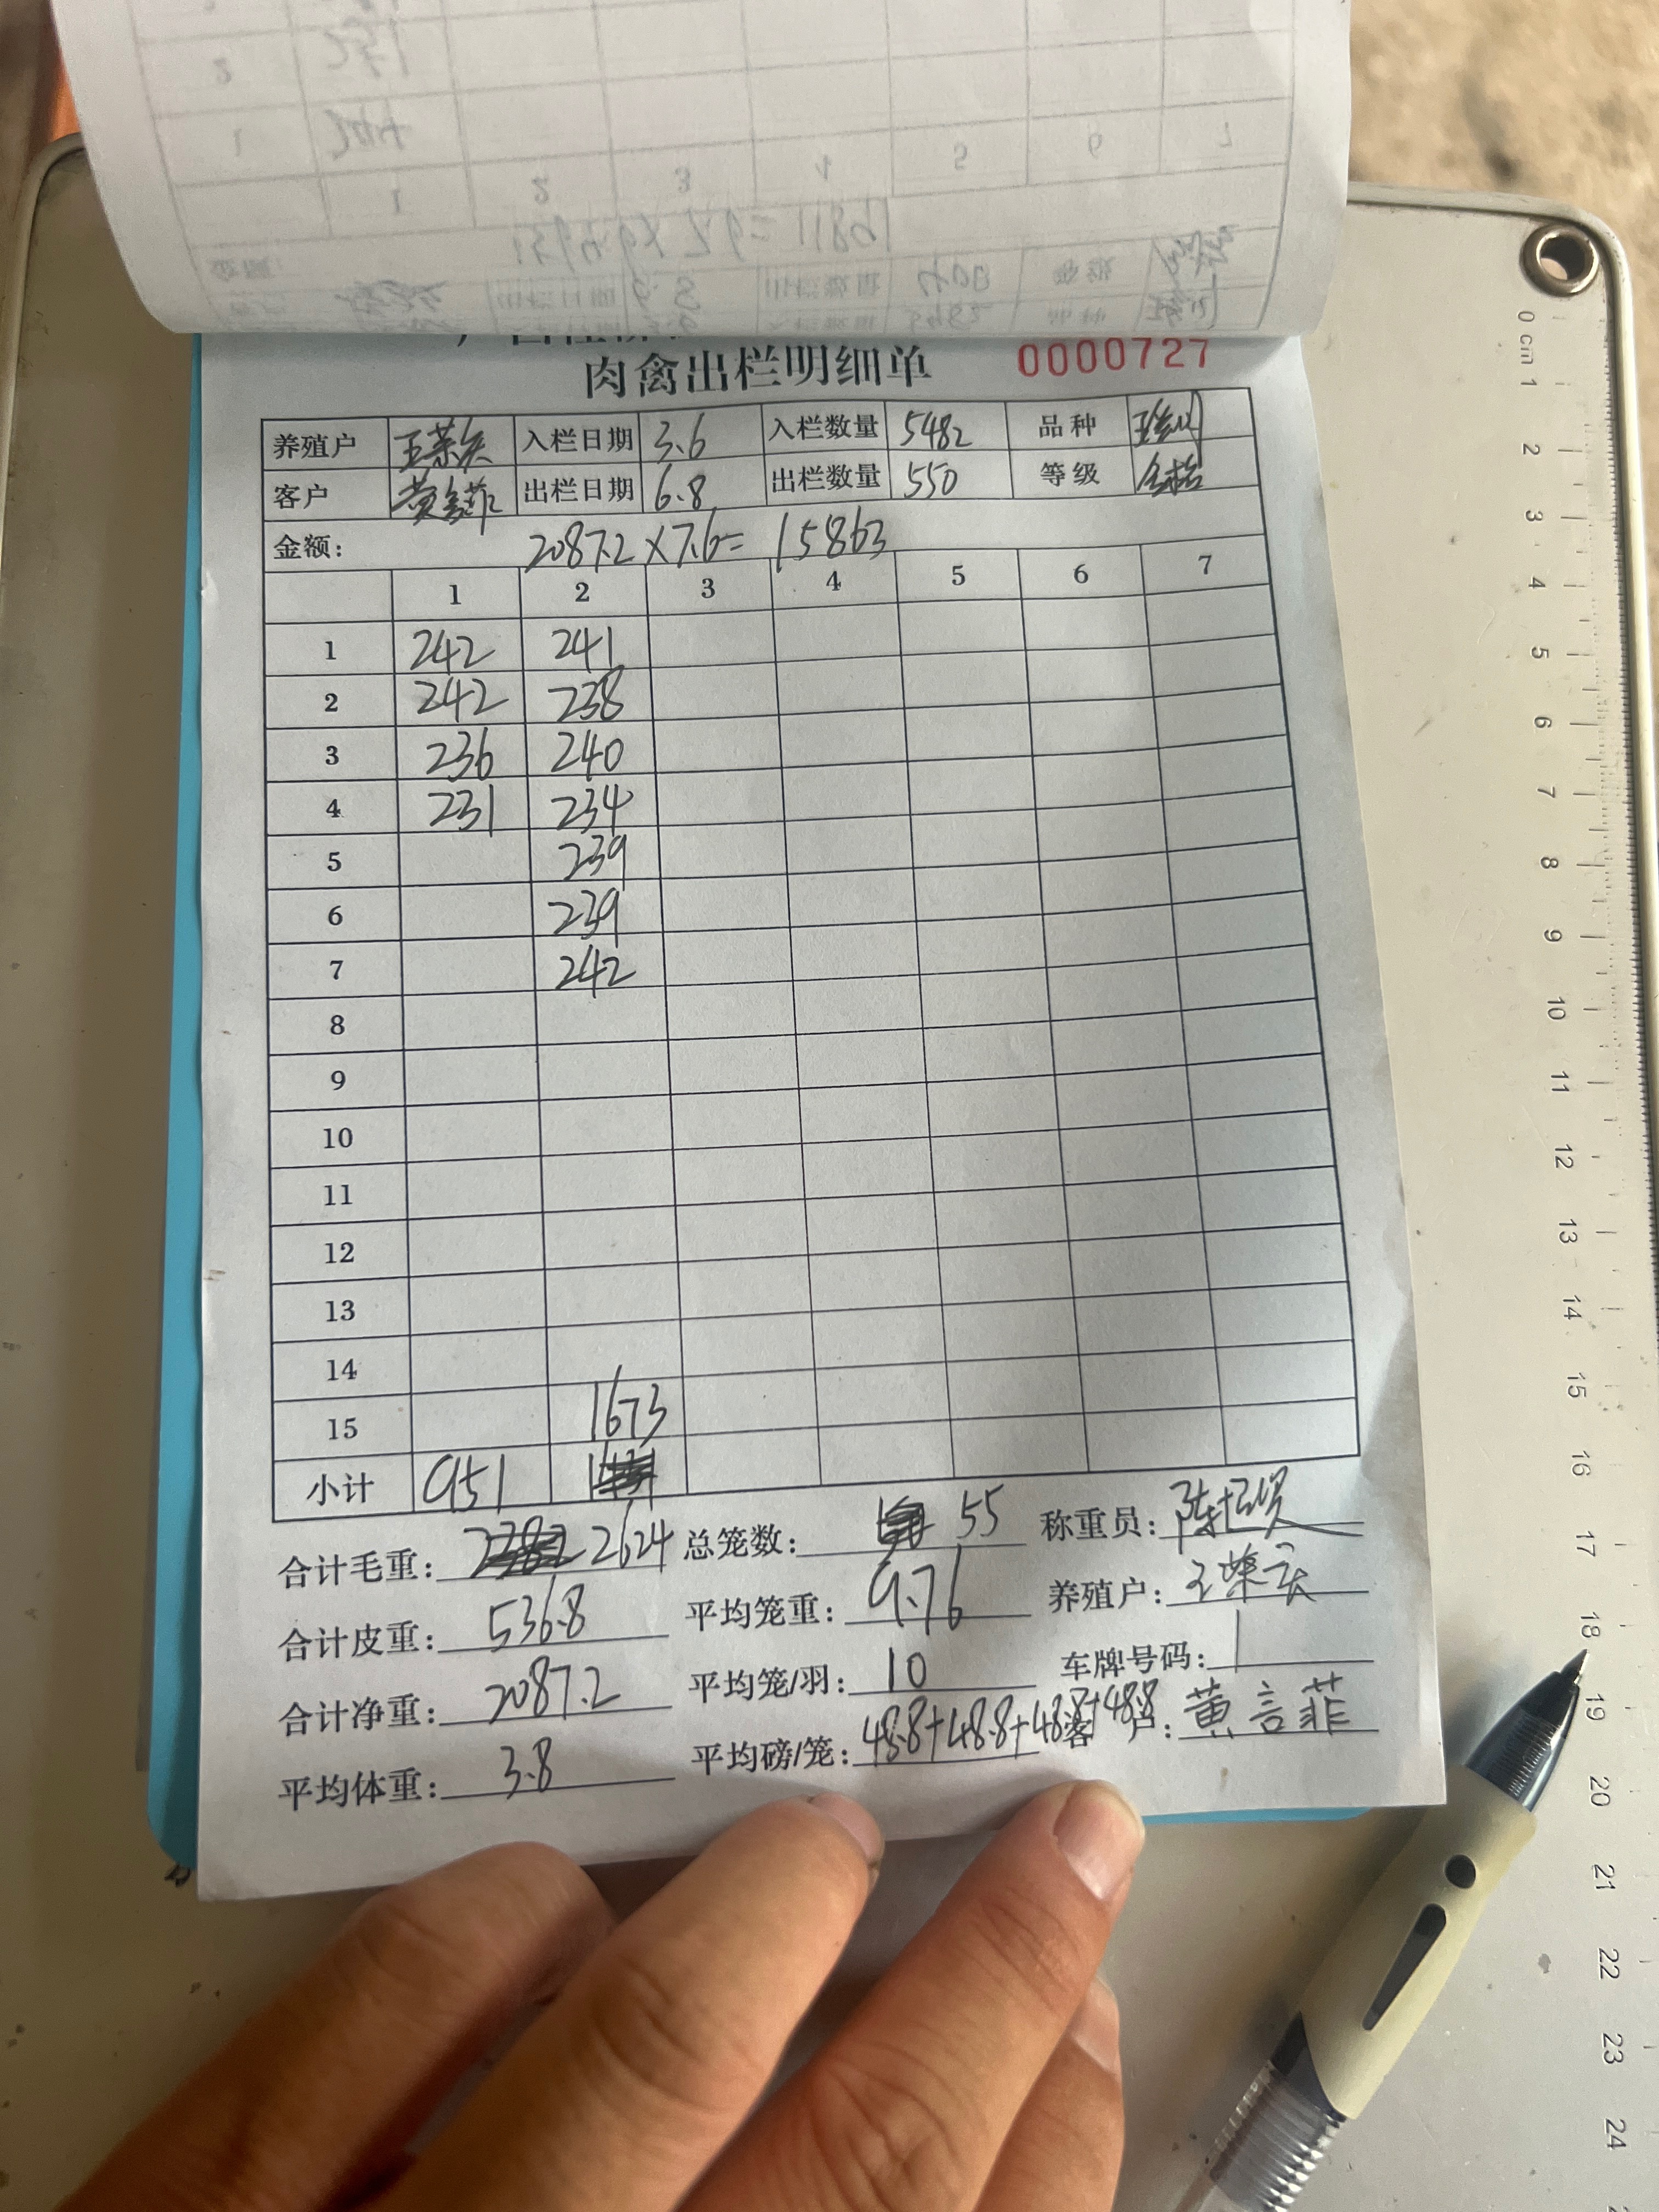 肉禽出栏明细单 0000727
养殖户 入栏日期 3.6 入栏数量 5482 品种
客户 出栏日期 6.8 出栏数量 550 等级 合格
金额: 2087.2×7.6= 15863
1 2 3 4 5 6 7
1 242 241
2 242 238
3 236 240
4 231 234
5 239
6 239
7 242
8
9
10
11
12
13
14
15 1673
小计 951
合计毛重: 2624 总笼数: 55 称重员:
合计皮重: 536.8 平均笼重: 9.76 养殖户:
合计净重: 2087.2 平均笼/羽: 10 车牌号码:
平均体重: 3.8 平均磅/笼: 48.8+48.8+48.8+48.8 客户: 黄言菲
0 cm 1 2 3 4 5 6 7 8 9 10 11 12 13 14 15 16 17 18 19 20 21 22 23 24